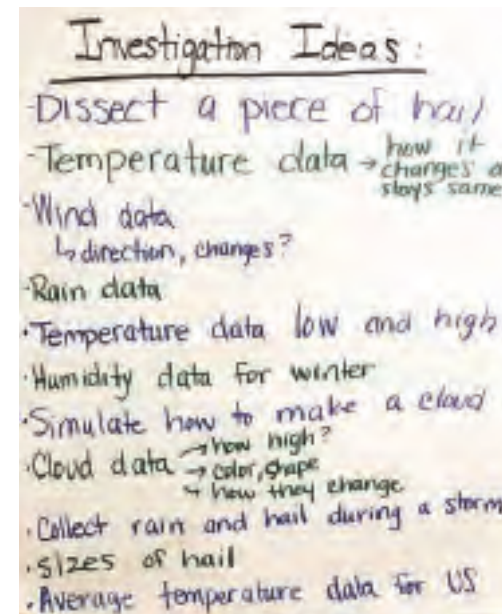 Investigation Ideas:
-Dissect a piece of hail
-Temperature data → how it
changes o
stays same
·Wind data
↳ direction, changes?
·Rain data
·Temperature data low and high
·Humidity data for winter
·Simulate how to make a cloud
·Cloud data → how high?
→ color, shape
↳ how they change
·Collect rain and hail during a storm
·sizes of hail
·Average temperature data for US